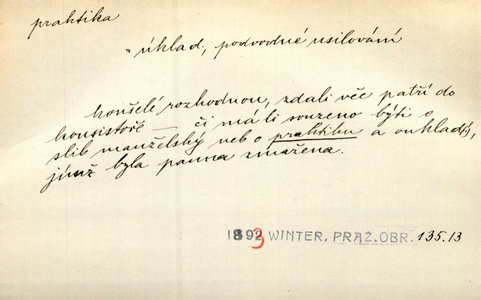 praktika
= úklad, podvodné usilování
konšelé rozhodnou, zdali věc patří do
konsistoře — či má-li souzeno býti o
slib manželský neb o praktiku a ouklady,
jimiž byla panna zmařena.
1893 WINTER, PRAŽ. OBR. 135.13